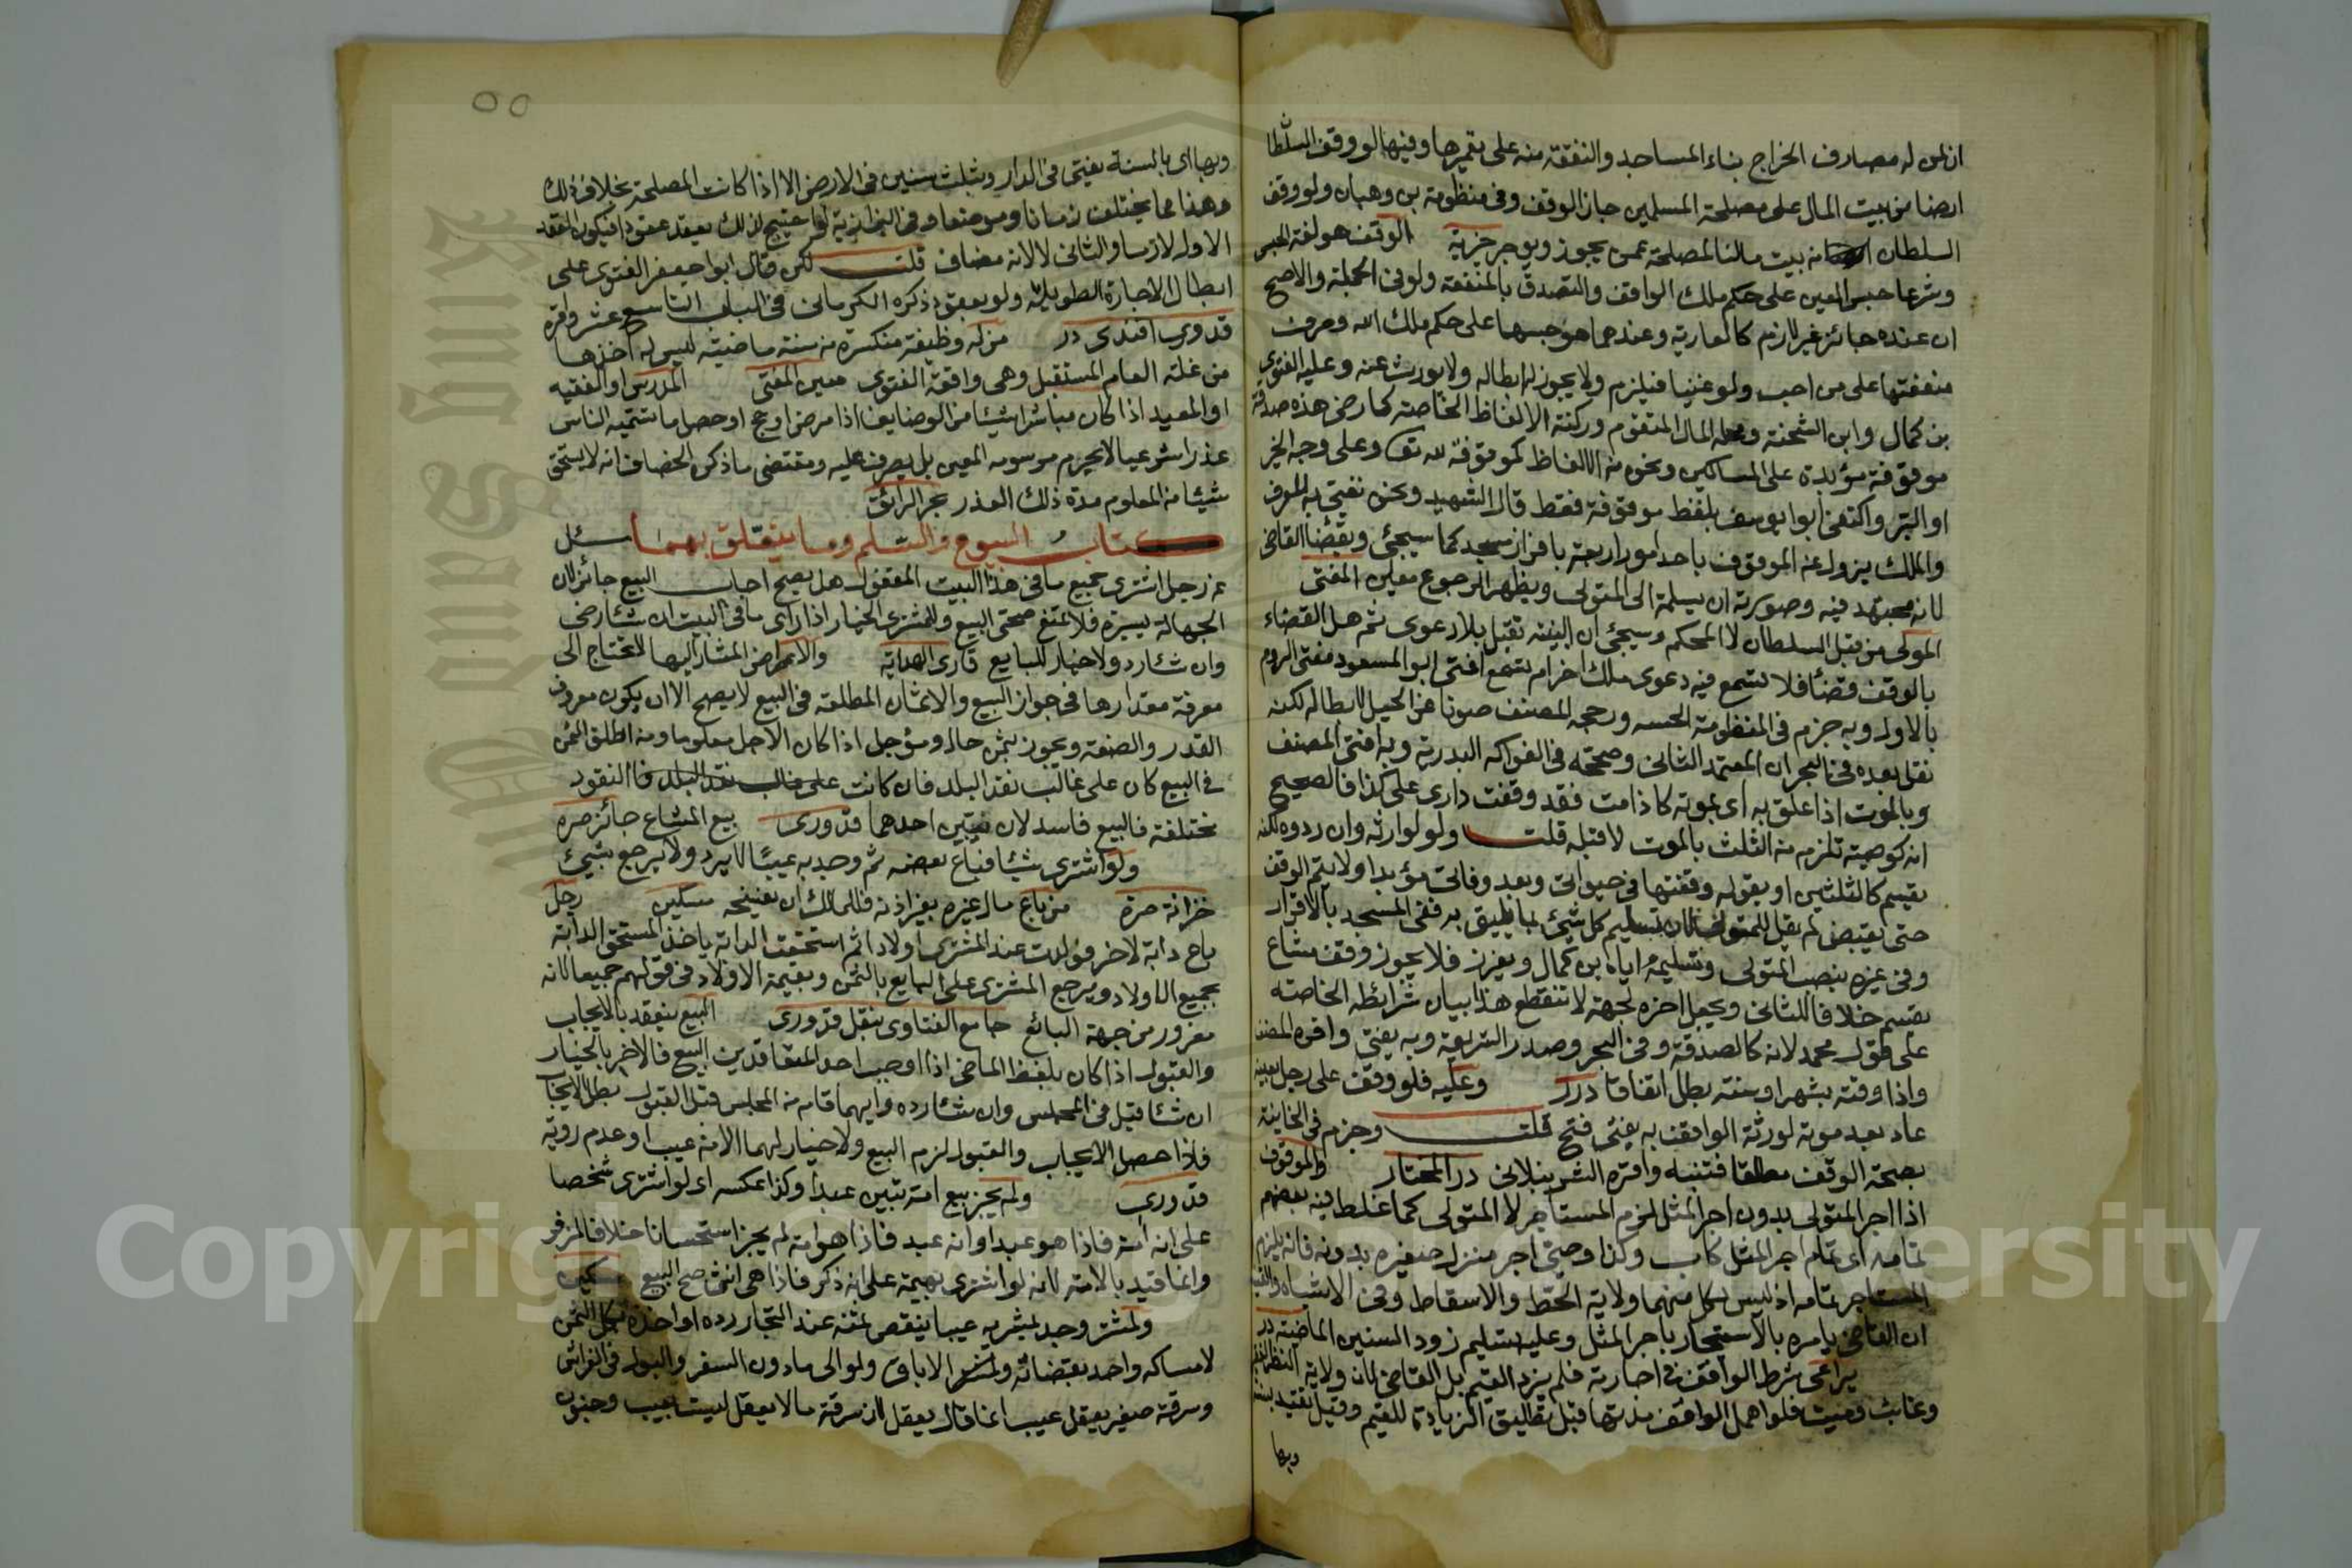 ان لمن له مصارف الخراج بناء المساجد والنفقة منه على تعميرها وفيها لو وقف السلطا
ارضا من بيت المال على مصلحة المسلمين جاز الوقف وفى منظومة بن وهبان ولو وقف
السلطان من بيت مالنا لمصلحة عمت يجوز ويوجر خيرية الوقف هو لغة الحبس
وشرعا حبس العين على حكم ملك الواقف والتصدق بالمنفعة ولو فى الجملة والاصح
ان عنده جائز غير لازم كالعارية وعندهما هو حبسها على حكم ملك الله وصرف
منفعتها على من احب ولو غنيا فيلزم ولا يجوز له ابطاله ولا يورث عنه وعليه الفتوى
بن كمال وابن الشحنة ومحله المال المتقوم وركنه الالفاظ الخاصة كارضى هذه صدقة
موقوفة مؤبدة على المساكين ونحوه من الالفاظ كموقوفة لله تعا وعلى وجه الخير
او البر واكتفى ابو يوسف بلفظ موقوفة فقط قال الشهيد ونحن نفتى به للعرف
والملك يزول عن الموقوف باحد امور اربعة بافراز مسجد كما سيجئ وبقضا القاضى
لانه مجتهد فيه وصورته ان يسلمه الى المتولى ويظهر الرجوع معين المفتى
المولى من قبل السلطان لا المحكم وسيجئ ان البينة تقبل بلا دعوى ثم هل القضاء
بالوقف قضأ فلا تسمع فيه دعوى ملك اخر ام تسمع افتى ابو المسعود مفتى الروم
بالاول وبه جزم فى المنظومة المحبية ورجحه المصنف صونا عن الحيل لابطاله لكنه
نقل بعده فى البحر ان المعتمد الثانى وصححه فى الفواكه البدرية وبه افتى المصنف
وبالموت اذا علق به اى بموته كاذا مت فقد وقفت دارى على كذا فالصحيح
انه كوصية تلزم من الثلث بالموت لا قبله قلت ولو لوارثه وان ردوه لكنه
يقسم كالثلثين او بقوله وقفتها فى حيواتى وبعد وفاتى مؤبدا ولا يتم الوقف
حتى يقبض لم يقل للمتولى لان تسليم كل شئ بما يليق به ففى المسجد بالافراز
وفى غيره بنصب المتولى وتسليمه اياه بن كمال ويفرز فلا يجوز وقف مشاع
يقسم خلافا للثانى ويجعل اخره لجهة لا تنقطع هذا بيان شرائطه الخاصة
على قول محمد لانه كالصدقة وفى البحر وصدر الشريعة وبه يفتى واقره المصنف
واذا وقته بشهر او سنة بطل اتفاقا درر وعليه فلو وقف على رجل بعينه
عاد بعد موته لورثة الواقف به يفتى فتح قلت وجزم فى الخانية
بصحة الوقف مطلقا فتنبه واقره الشرنبلالى در المختار والموقوف
اذا اجر المتولى بدون اجر المثل لزم المستاجر لا المتولى كما غلط فيه بعضهم
تمامه اى تمام اجر المثل كاب وكذا وصى اجر منزل صغيره بدونه فانه يلزم
المستاجر تمامه اذ ليس لكل منهما ولاية الحط والاسقاط وفى الاشباه والقنية
ان القاضى يامره بالاستيجار باجر المثل وعليه تسليم زود السنين الماضية در
يراعى شرط الواقف فى اجارته فلم يزد القيم بل القاضى لان ولاية النظر لفقير
وغائب وميت فلو اهمل الواقف مدتها قيل تطليق الزيادة للقيم وقيل تقيد بسنة
وبها
وبها اى بالسنة يفتى فى الدار وبثلث سنين فى الارض الا اذا كانت المصلحة بخلاف ذلك
وهذا مما يختلف زمانا وموضعا وفى البزازية لو احتيج لذلك يعقد عقودا فيكون العقد
الاول لازما والثانى لا لانه مضاف قلت لكن قال ابو جعفر الفتوى على
ابطال الاجارة الطويلة ولو بعقود ذكره الكرمانى فى الباب التاسع عشر واقره
قدورى افندى در من له وظيفة منكسرة من سنة ماضية ليس له اخذها
من غلة العام المستقبل وهى واقعة الفتوى معين المفتى المدرس او الفقيه
او المعيد اذا كان مباشرا شيئا من الوضايف اذا مرض او حج او حصل ما تسميه الناس
عذرا شرعيا لا يحرم مرسومه المعين بل يصرف عليه ومقتضى ما ذكره الخصاف انه لا يستحق
شيئا من المعلوم مدة ذلك العذر بحر الرائق
كتاب البيوع والسلم وما يتعلق بهما سئل
عن رجل اشترى جميع ما فى هذا البيت المقفول هل يصح اجاب البيع جائز لان
الجهالة يسيرة فلا تمنع صحة البيع وللمشترى الخيار اذا راى ما فى البيت ان شأ رضى
وان شأ رد ولا خيار للبايع قارى الهداية والاعراض المشار اليها لا تحتاج الى
معرفة مقدارها فى جواز البيع والاثمان المطلقة فى البيع لا يصح الا ان يكون معروف
القدر والصفة ويجوز بثمن حال ومؤجل اذا كان الاجل معلوما ومن اطلق الثمن
فى البيع كان على غالب نقد البلد فان كانت على غالب نقد البلد فا النقود
مختلفة فالبيع فاسد لان تبيين احدهما قدورى بيع المشاع جائز صره
ولو اشترى شيئا فباع بعضه ثم وجد به عيبا لا يرد ولا يرجع بشيئ
خزانة صرة من باع مال غيره بغير اذنه فللمالك ان يفسخه مسكين رجل
باع دابة لاخر فولدت عند المشترى اولادا ثم استحقت الدابة ياخذ المستحق الدابة
بجميع الاولاد ويرجع المشترى على البايع بالثمن وبقيمة الاولاد فى قولهم جميعا لانه
مغرور من جهة البائع جامع الفتاوى بنقل قدورى البيع ينعقد بالايجاب
والقبول اذا كان بلفظ الماضى اذا اوجب احد المتعاقدين البيع فالاخر بالخيار
ان شأ قبل فى المجلس وان شأ رده وايهما قام من المجلس قبل القبول بطل الايجاب
فاذا حصل الايجاب والقبول لزم البيع ولا خيار لهما الا من عيب او عدم روية
قدورى ولم يجز بيع امة تبين عبدا وكذا عكسه اى لو اشترى شخصا
على انه أمة فاذا هو عبد او انه عبد فاذا هو امة لم يجز استحسانا خلافا لزفر
وانما قيد بالامة لانه لو اشترى بهيمة على انه ذكر فاذا هى انثى صح البيع مسكين
ولمشتر وجد بمشريه عيبا ينقص ثمنه عند التجار رده او اخذه بكل الثمن
لا مساكه واحد بقضائه ولمشتر الاباق ولو الى ما دون السفر والبول فى الفراش
وسرقة صغير يعقل عيب انما قال يعقل لان سرقة ما لا يعقل ليست بعيب وجنون